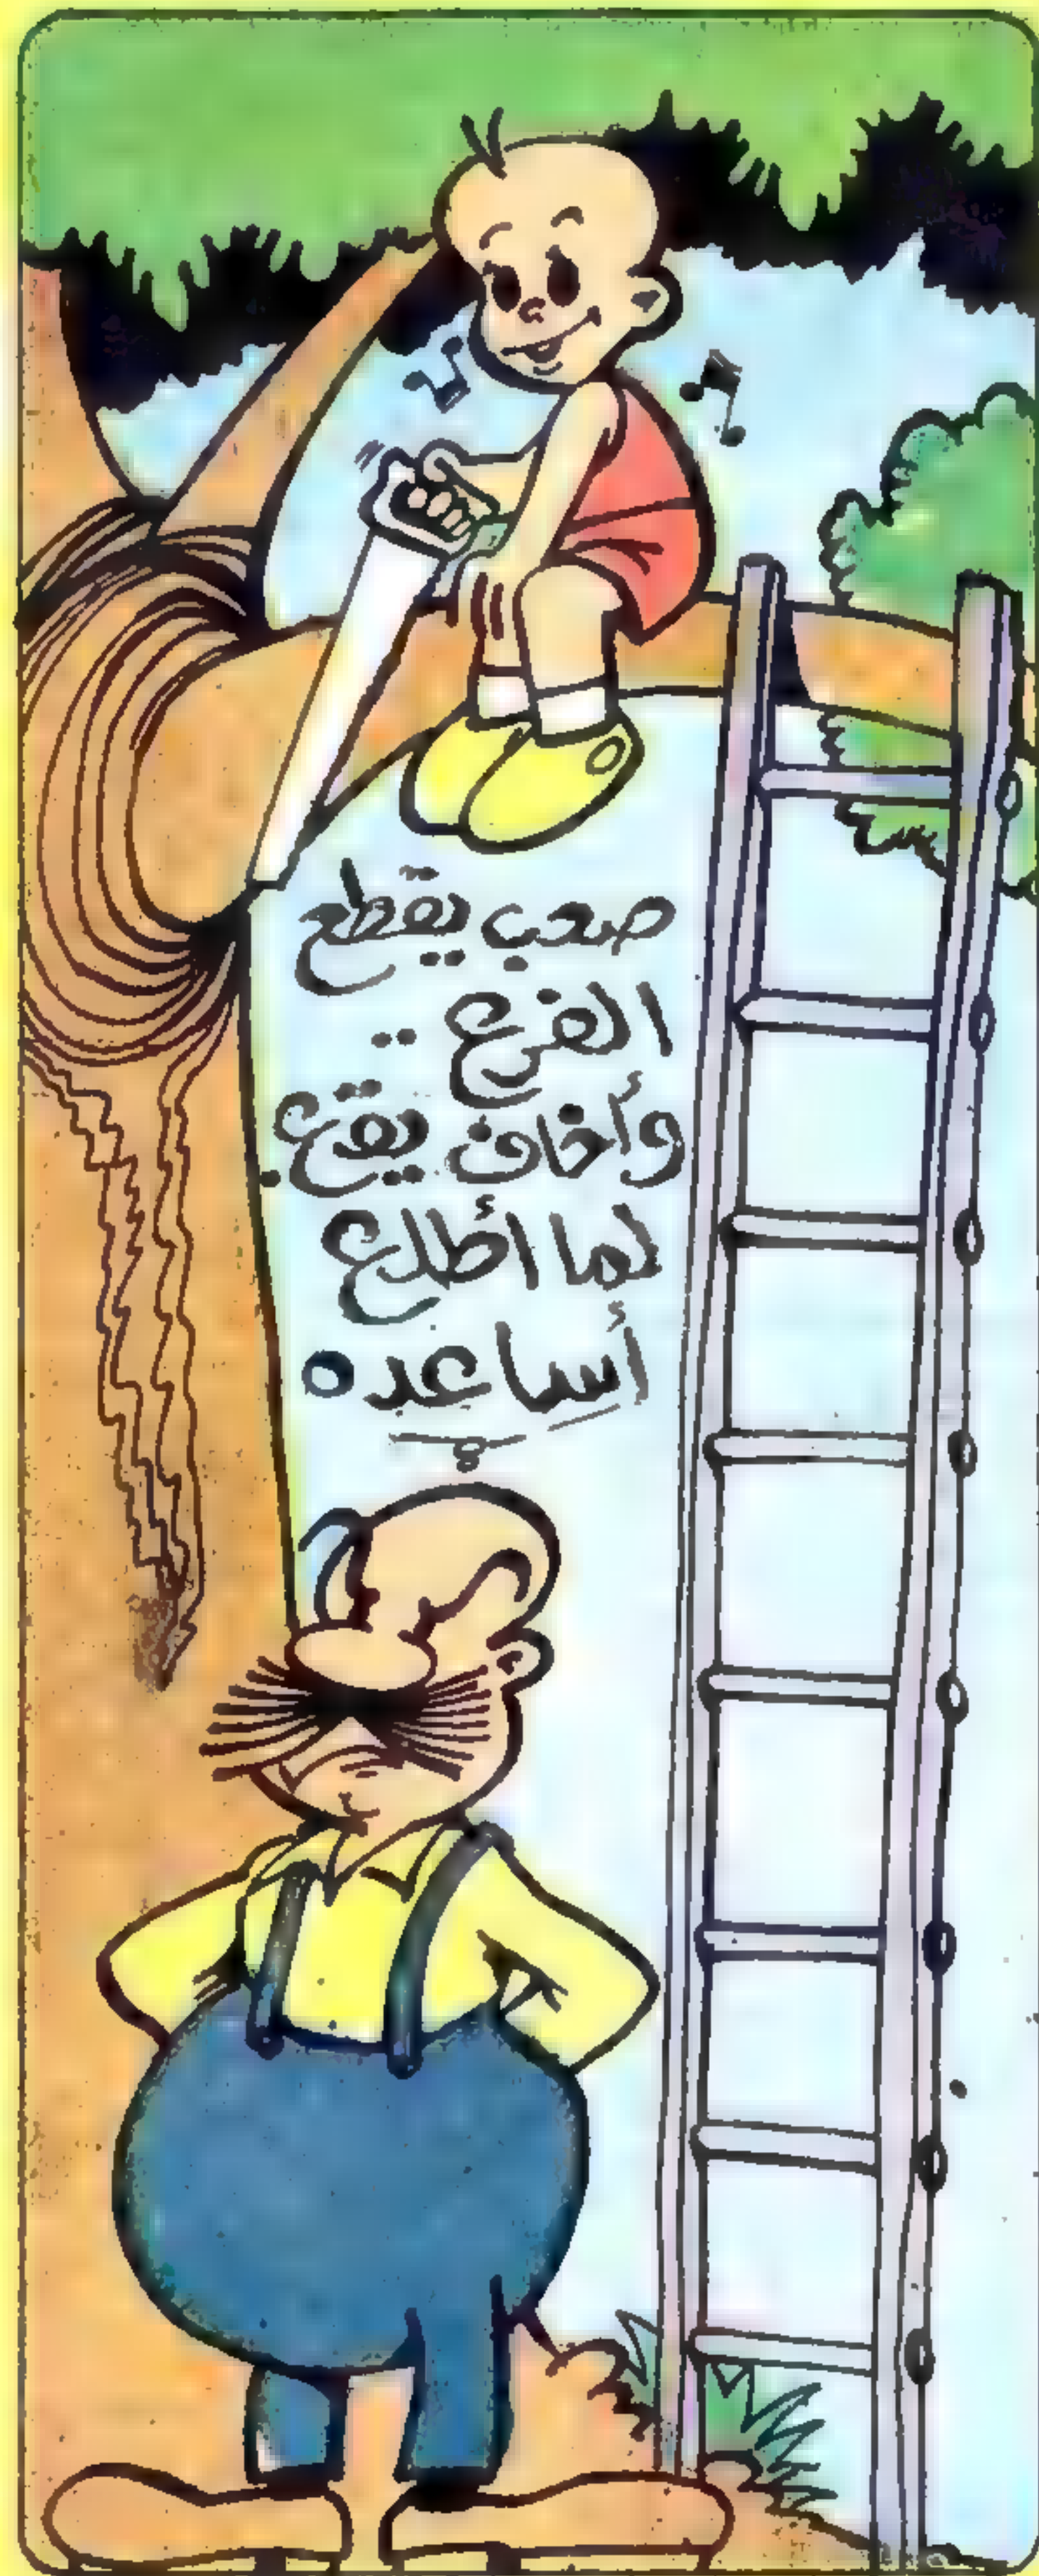 صعب يقطع
الفرع ..
وأخاف يقع.
لما اطلع
أساعده